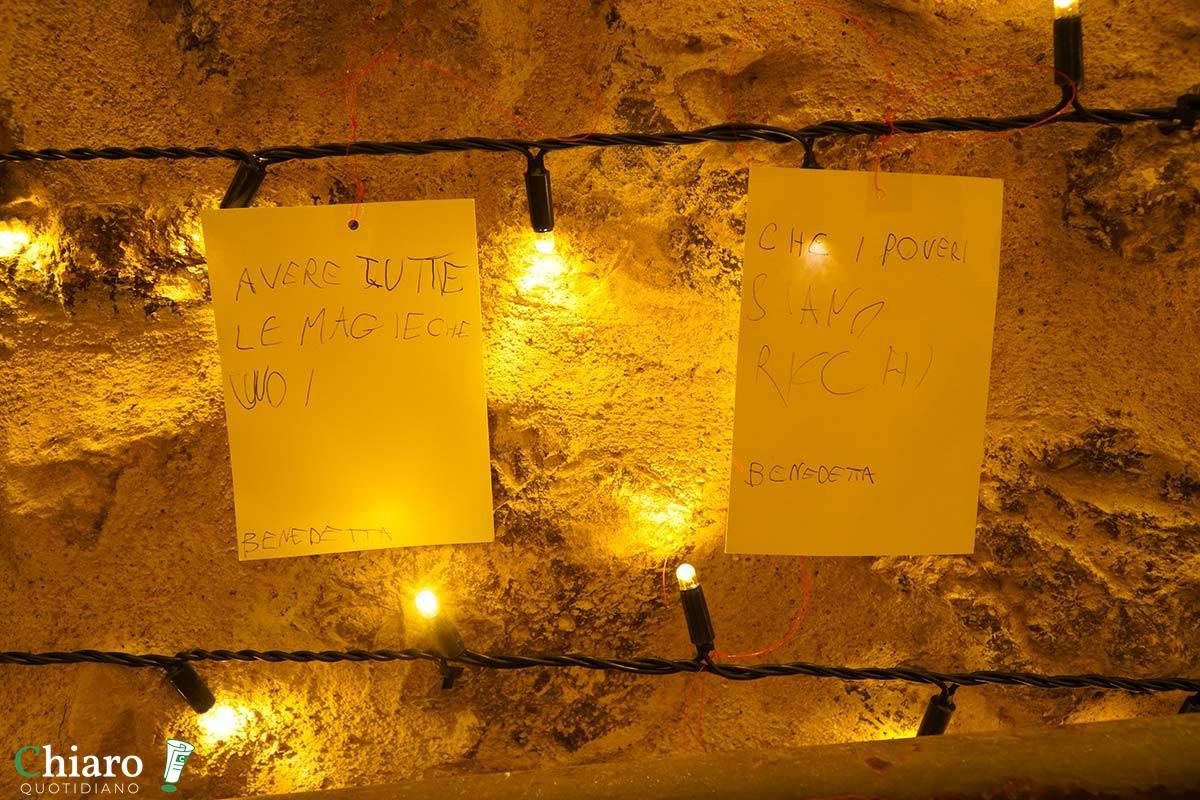 AVERE TUTTE
LE MAGIE CHE
VUOI
BENEDETTA
CHE I POVERI
SIANO
RICCHI
BENEDETTA
Chiaro
QUOTIDIANO